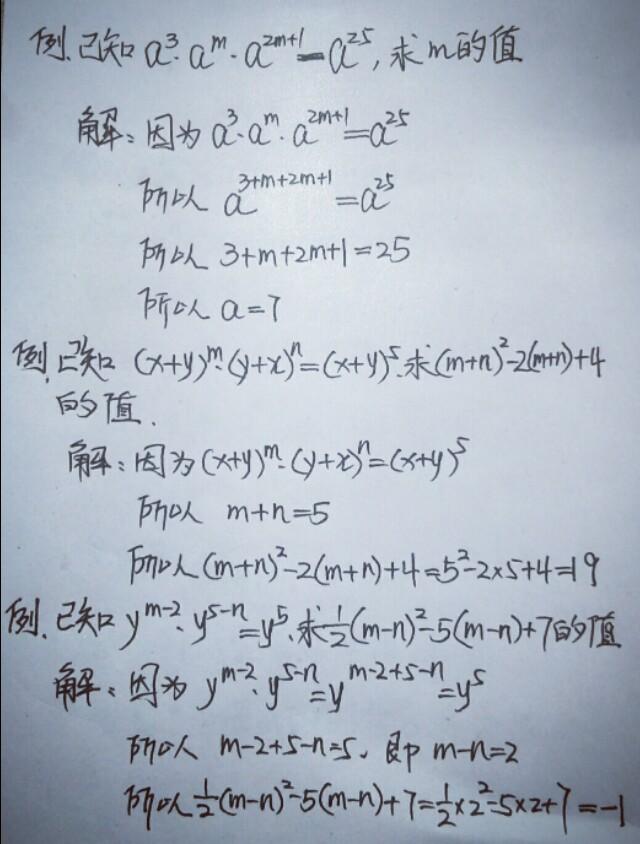 例.已知 a³·aᵐ·a²ᵐ⁺¹=a²⁵,求m的值
解:因为 a³·aᵐ·a²ᵐ⁺¹=a²⁵
所以 a³⁺ᵐ⁺²ᵐ⁺¹=a²⁵
所以 3+m+2m+1=25
所以 a=7
例.已知 (x+y)ᵐ·(y+x)ⁿ=(x+y)⁵.求(m+n)²-2(m+n)+4
的值.
解:因为(x+y)ᵐ·(y+x)ⁿ=(x+y)⁵
所以 m+n=5
所以(m+n)²-2(m+n)+4=5²-2×5+4=19
例.已知 yᵐ⁻²·y⁵⁻ⁿ=y⁵.求½(m-n)²-5(m-n)+7的值
解:因为 yᵐ⁻²·y⁵⁻ⁿ=yᵐ⁻²⁺⁵⁻ⁿ=y⁵
所以 m-2+5-n=5、即 m-n=2
所以½(m-n)²-5(m-n)+7=½×2²-5×2+7=-1